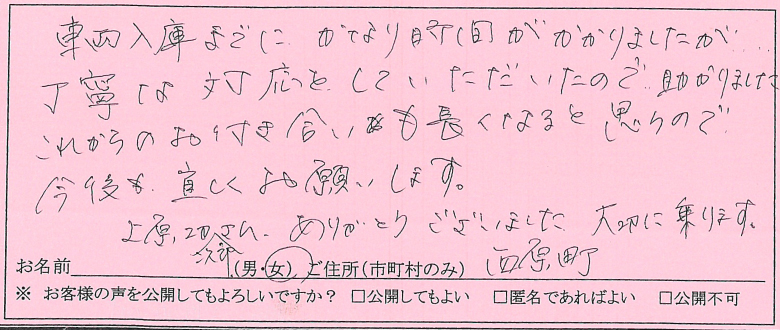 車両入庫までに かなり時間がかかりましたが....
丁寧な対応をしていただいたので、助かりました
これからのお付き合いも長くなると思うので
今後も宜しくお願いします。
上原 次郎さん、ありがとうございました 大切に乗ります。
お名前 (男・女) ご住所(市町村のみ) 西原町
※ お客様の声を公開してもよろしいですか? □公開してもよい □匿名であればよい □公開不可